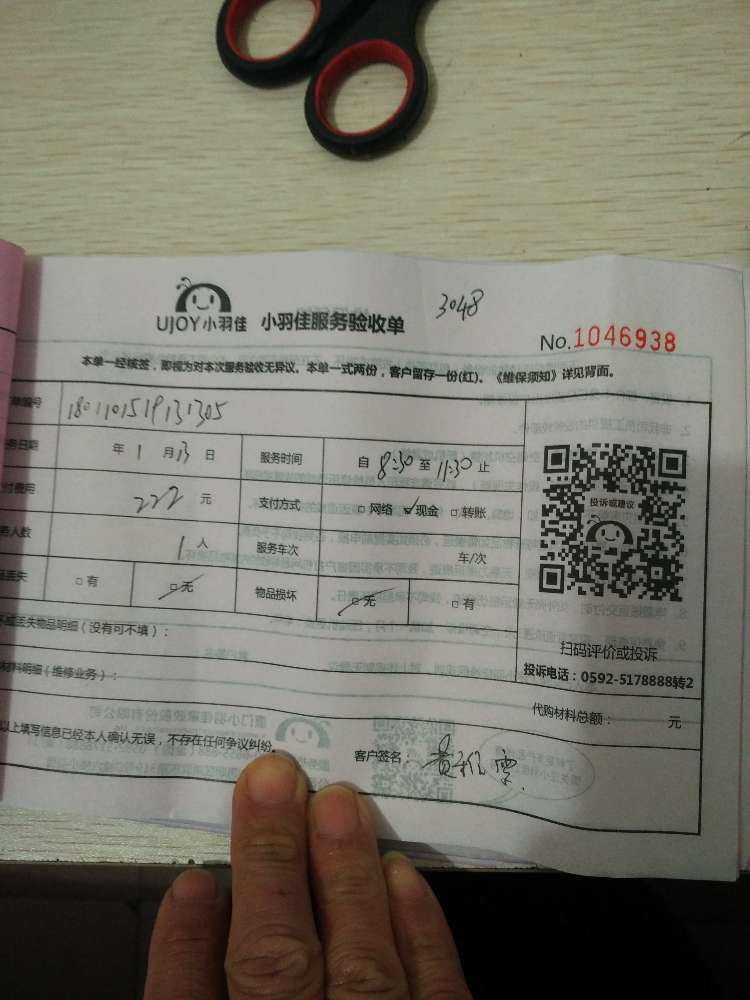 3048
UJOY小羽佳 小羽佳服务验收单
No.1046938
本单一经核签，即视为对本次服务验收无异议。本单一式两份，客户留存一份(红)。《维保须知》详见背面。
单编号 1801101519131305
务日期 年 1 月 13 日 服务时间 自 8:30 至 11:30 止
付费用 222 元 支付方式 □ 网络 □ 现金 □ 转账
务人数 1 人 服务车次 车/次
丢失 □ 有 □ 无 物品损坏 □ 无 □ 有
投诉或建议
扫码评价或投诉
投诉电话：0592-5178888转2
坏或丢失物品明细（没有可不填）：
材料明细（维修业务）：
代购材料总额： 元
以上填写信息已经本人确认无误，不存在任何争议纠纷。
客户签名：黄